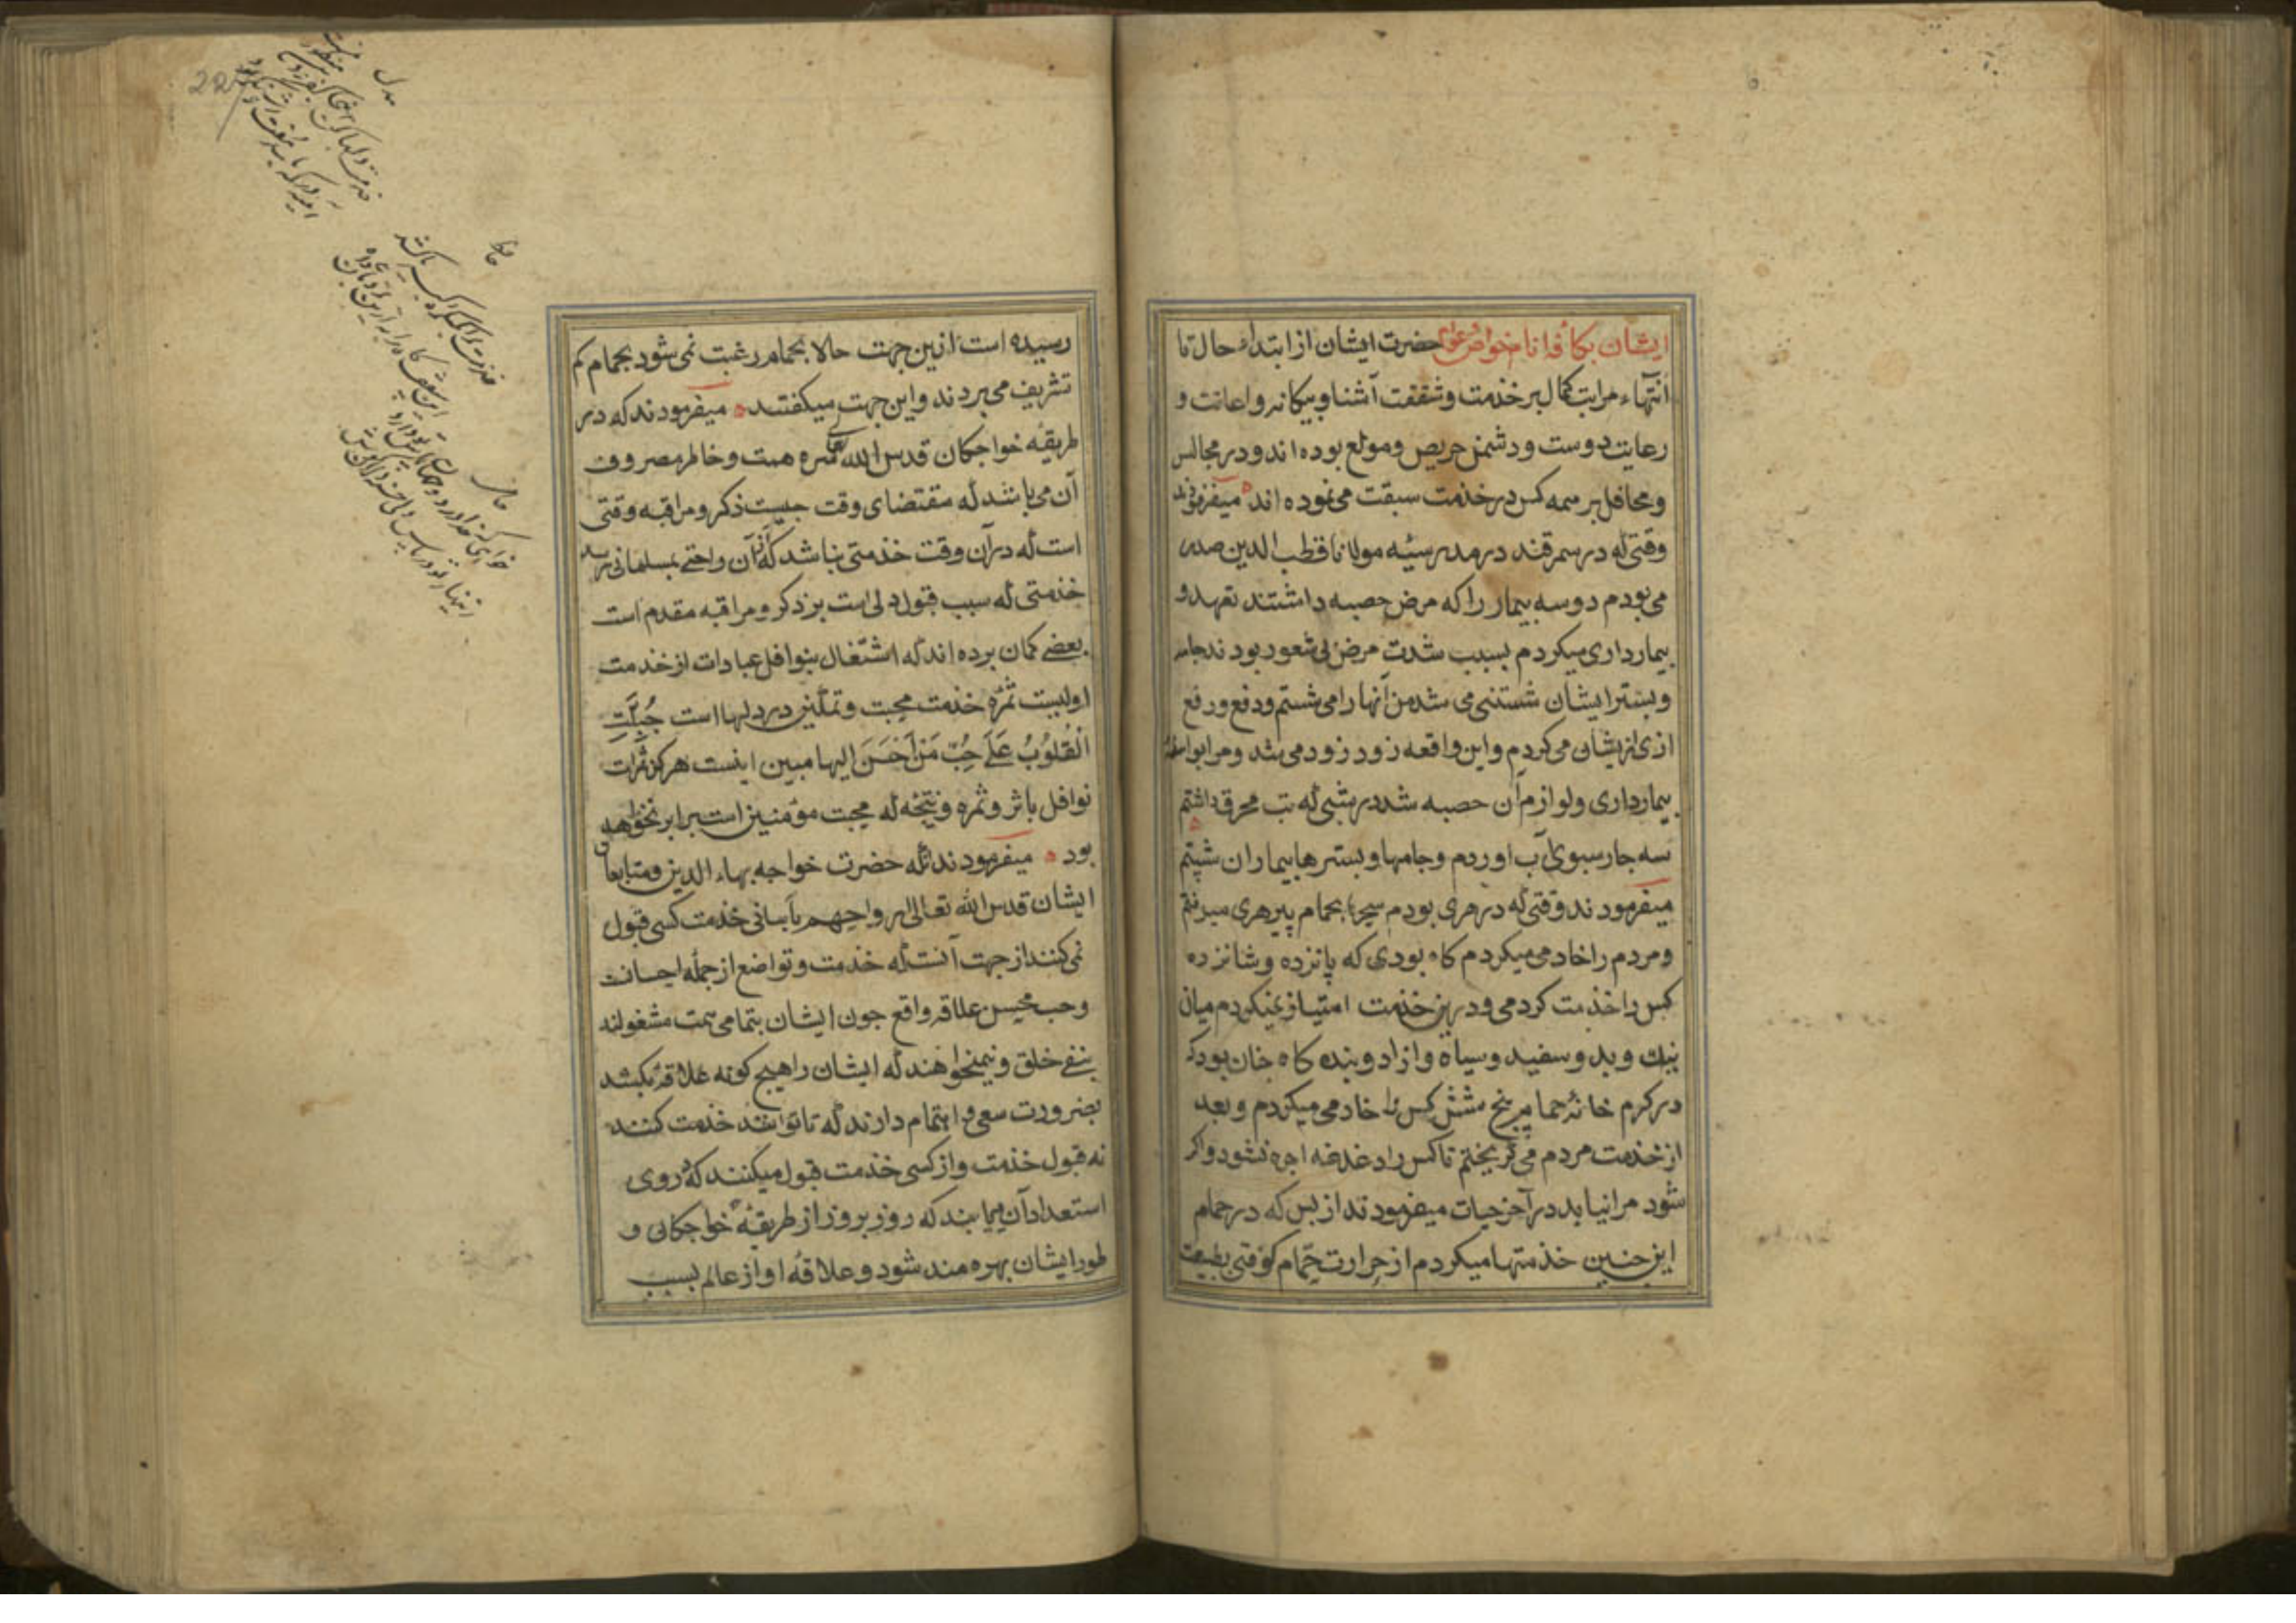 ایشان بکافهٔ انام خواص و عوام حضرت ایشان از ابتداء حال تا
انتهاء مراتب کمال بر خدمت و شفقت آشنا و بیکانه و اعانت و
رعایت دوست و دشمن حریص و مولع بوده اند و در مجالس
و محافل بر همه کس در خدمت سبقت می نموده اند میفرمودند
وقتی که در سمرقند در مدرسهٔ مولانا قطب الدین صدر
می بودم دو سه بیمار را که مرض حصبه داشتند تعهد و
بیمارداری میکردم بسبب شدت مرض بی شعور بودند جامه
و بستر ایشان شستنی می شد من آنها را می شستم و دفع و رفع
اذی از ایشان می کردم و این واقعه زود زود می شد و مرا بواسطهٔ
بیمارداری و لوازم آن حصبه شد در شبی که تب محرق داشتم
سه جار سبوی آب اوردم و جامها و بسترها بیماران شستم
میفرمودند وقتی که در هری بودم سحرها بحمام پیر هری میرفتم
و مردم را خادمی میکردم کاه بودی که پانزده و شانزده
کس را خذمت کردمی و درین خذمت امتیاز نمیکردم میان
نیک و بد و سفید و سیاه و ازاد و بنده کاه جنان بود که
در کرم خانهٔ حمام پنج شش کس را خادمی میکردم و بعد
از خذمت مردم می کریختم تا کس را دغدغه اجره نشود و اکر
شود مرا نیابد در آخر حیات میفرمودند از بس که در حمام
این جنین خذمتها میکردم از حرارت حمام کوفتی بطبیعت
رسیده است ازین جهت حالا بحمام رغبت نمی شود بحمام کم
تشریف می بردند و این جهت میکفتند میفرمودند که در
طریقهٔ خواجکان قدس الله تعالی سره همت و خاطر مصروف
آن می باشد که مقتضای وقت جیست ذکر و مراقبه وقتی
است که در آن وقت خذمتی نباشد که از آن راحتی بمسلمانی رسد
خذمتی که سبب قبول دلی است بر ذکر و مراقبه مقدم است
بعضی کمان برده اند که اشتغال بنوافل عبادات از خدمت
اولیست ثمره خذمت محبت و تمکین در دلهااست جُبِلَتِ
الْقُلُوبُ عَلَی حُبِّ مَنْ اَحْسَنَ الیها مبین اینست هرکز ثمرات
نوافل با ثر و ثمره و نتیجه که محبت مؤمنین است برابر نخواهد
بود میفرمودند که حضرت خواجه بهاء الدین و متابعان
ایشان قدس الله تعالی ارواحهم بآسانی خذمت کسی قبول
نمی کنند از جهت آنست که خذمت و تواضع از جمله احسانت
و حب محسن علاقه واقع جون ایشان بتمامی همت مشغولند
بنفی خلق و نمیخواهند که ایشان را هیچ کونه علاقهٔ بکشد
بضرورت سعی و اهتمام دارند که تا توانند خذمت کنند
نه قبول خذمت و از کسی خذمت قبول میکنند که در وی
استعداد آن مییابند که روز بروز از طریقهٔ خواجکان و
طور ایشان بهره مند شود و علاقهٔ او از عالم بسبب